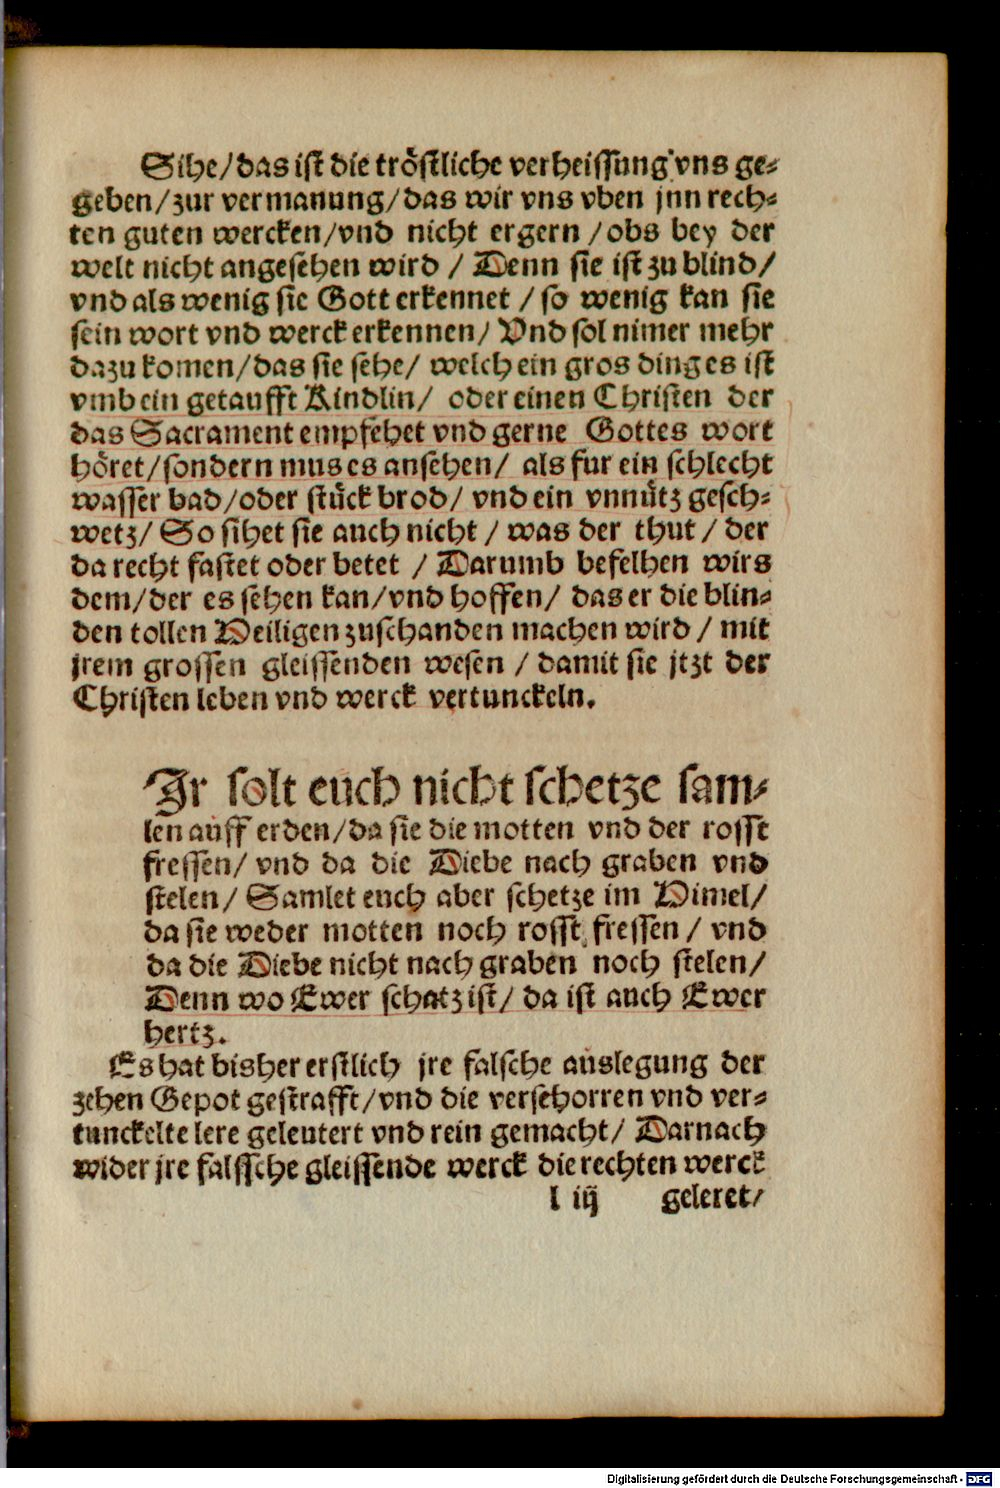 Sihe/das ist die tröstliche verheissung vns ge-
geben/zur vermanung/das wir vns vben jnn rech-
ten guten wercken/vnd nicht ergern /obs bey der
welt nicht angesehen wird / Denn sie ist zu blind/
vnd als wenig sie Gott erkennet / so wenig kan sie
sein wort vnd werck erkennen/ Vnd sol nimer mehr
dazu komen/das sie sehe/ welch ein gros ding es ist
vmb ein getaufft Kindlin/ oder einen Christen der
das Sacrament empfehet vnd gerne Gottes wort
höret/sondern mus es ansehen/ als fur ein schlecht
wasser bad/oder stück brod/ vnd ein vnnütz gesch-
wetz/ So sihet sie auch nicht / was der thut / der
da recht fastet oder betet / Darumb befelhen wirs
dem/der es sehen kan/vnd hoffen/ das er die blin-
den tollen Heiligen zuschanden machen wird / mit
jrem grossen gleissenden wesen / damit sie jtzt der
Christen leben vnd werck vertunckeln.
Ir solt euch nicht schetze sam-
len auff erden/da sie die motten vnd der rosst
fressen/ vnd da die Diebe nach graben vnd
stelen/ Samlet euch aber schetze im Himel/
da sie weder motten noch rosst fressen / vnd
da die Diebe nicht nach graben noch stelen/
Denn wo Ewer schatz ist/ da ist auch Ewer
hertz.
Es hat bisher erstlich jre falsche auslegung der
zehen Gepot gestrafft/vnd die versehorren vnd ver-
tunckelte lere geleutert vnd rein gemacht/ Darnach
wider jre falssche gleissende werck die rechten werck
l iij geleret/
Digitalisierung gefördert durch die Deutsche Forschungsgemeinschaft - DFG